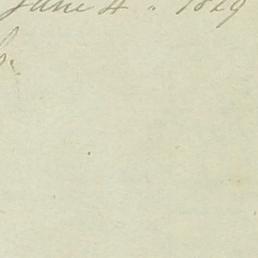 June 4. 1829